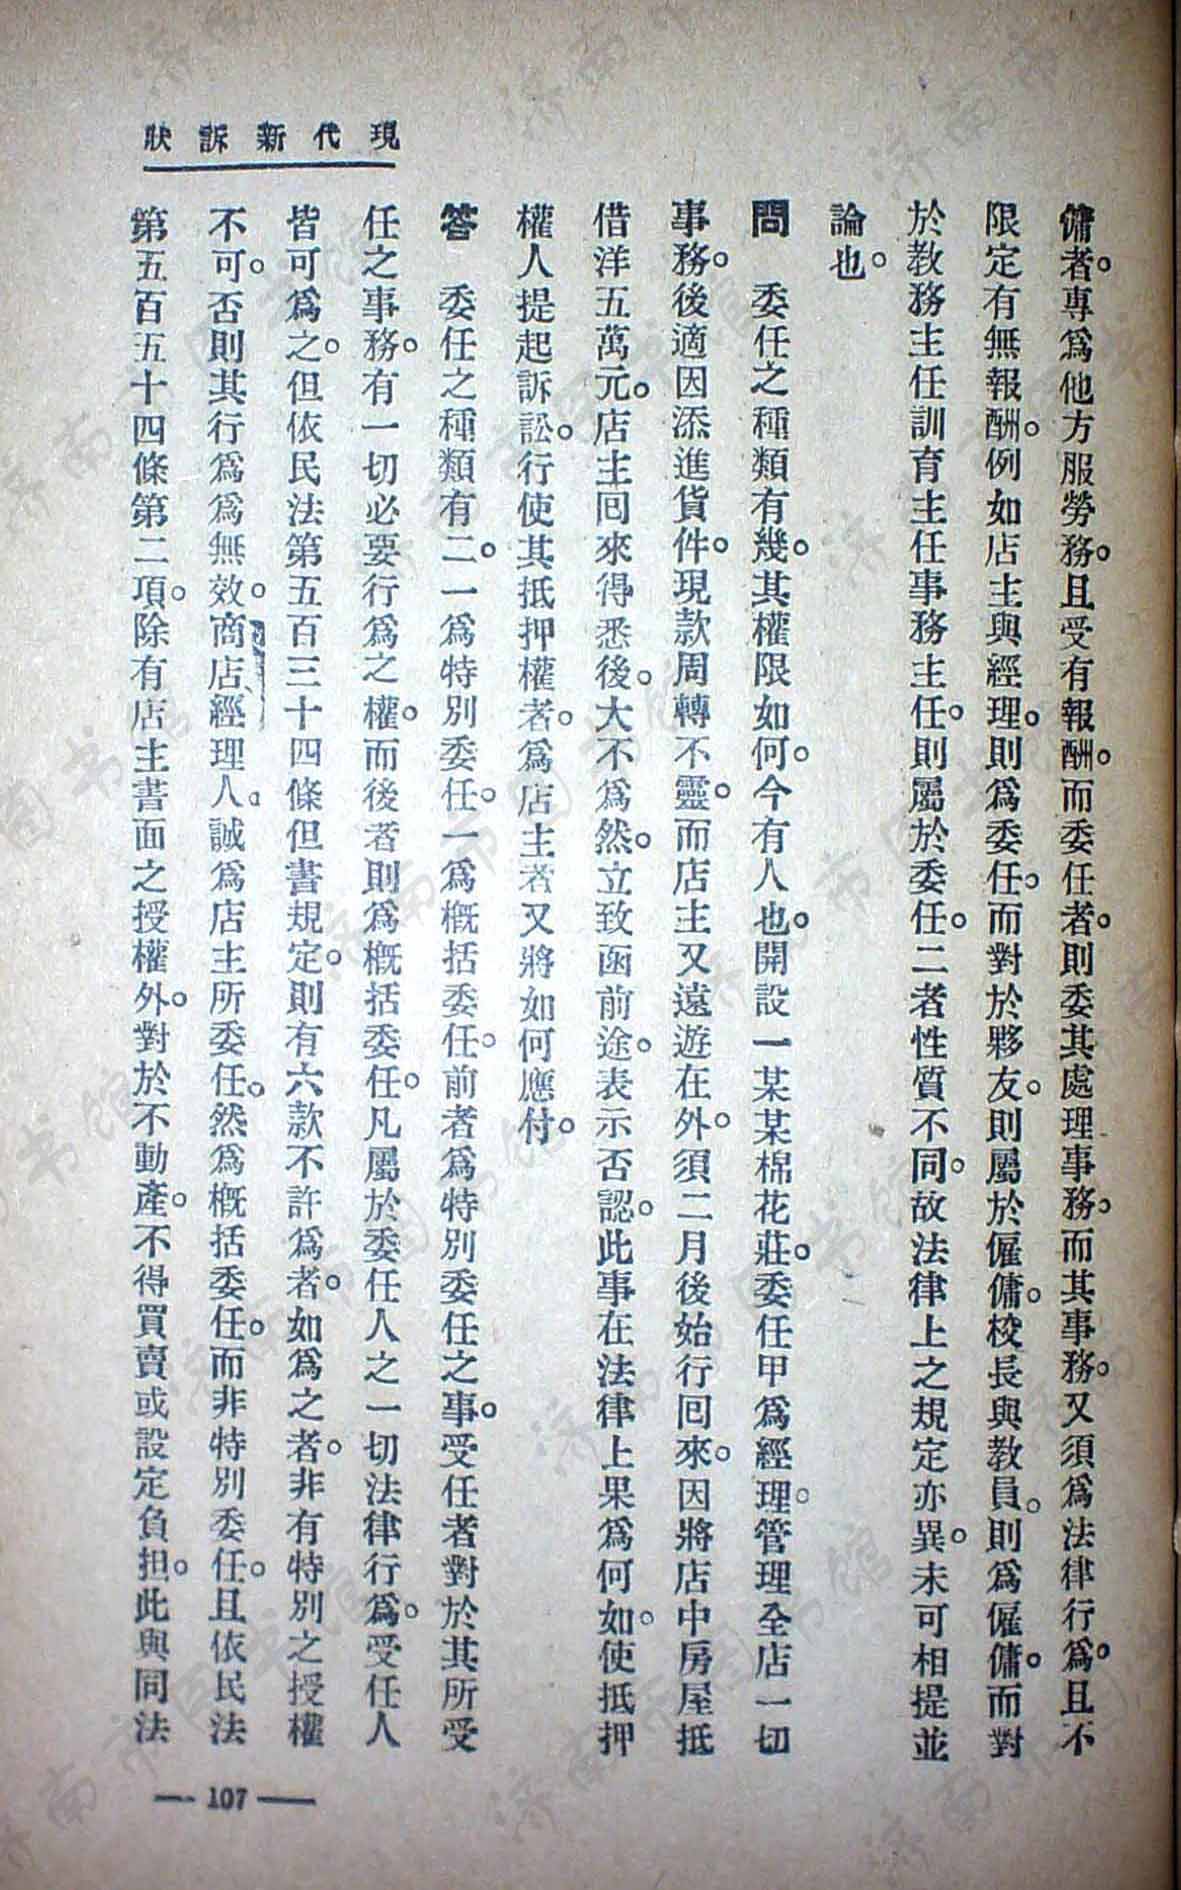 現代新訴狀
傭者。專爲他方服勞務。且受有報酬。而委任者。則委其處理事務。而其事務。又須爲法律行爲。且不
限定有無報酬。例如店主與經理。則爲委任。而對於夥友。則屬於僱傭。校長與教員。則爲僱傭。而對
於教務主任訓育主任事務主任。則屬於委任。二者性質不同。故法律上之規定亦異。未可相提並
論也。
問　委任之種類有幾。其權限如何。今有人也。開設一某某棉花莊。委任甲爲經理。管理全店一切
事務。後適因添進貨件。現款周轉不靈。而店主又遠遊在外。須二月後始行回來。因將店中房屋抵
借洋五萬元。店主回來得悉後。大不爲然。立致函前途。表示否認。此事在法律上果爲何如。使抵押
權人提起訴訟。行使其抵押權者。爲店主者又將如何應付。
答　委任之種類有二。一爲特別委任。一爲概括委任。前者爲特別委任之事。受任者對於其所受
任之事務。有一切必要行爲之權。而後者則爲概括委任。凡屬於委任人之一切法律行爲。受任人
皆可爲之。但依民法第五百三十四條但書規定。則有六款不許爲者。如爲之者。非有特別之授權
不可。否則其行爲爲無效。商店經理人。誠爲店主所委任。然爲概括委任。而非特別委任。且依民法
第五百五十四條第二項。除有店主書面之授權外。對於不動產。不得買賣或設定負担。此與同法
— 107 —
济南市图书馆